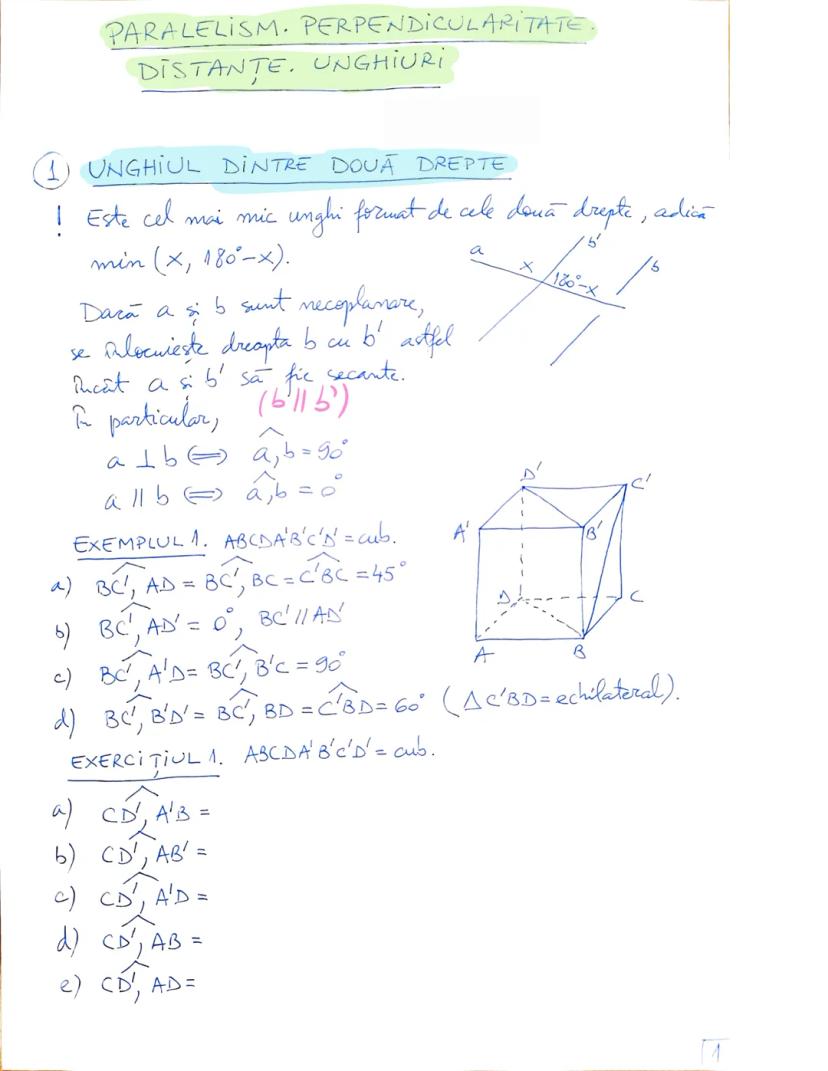 PARALELISM. PERPENDICULARITATE.
DISTANȚE. UNGHIURI
1 UNGHIUL DINTRE DOUĂ DREPTE
! Este cel mai mic unghi format de cele două drepte, adică
min (x, 180°-x).
a
x
b'
180°-x
b
Dacă a și b sunt necoplanare,
se înlocuiește dreapta b cu b' astfel
încât a și b' să fie secante.
(b || b')
În particular,
a ⊥ b ⟺ a,b = 90°
a || b ⟺ a,b = 0°
EXEMPLUL 1. ABCDA'B'C'D' = cub.
a) BC', AD = BC', BC = C'BC = 45°
b) BC', AD' = 0°, BC' || AD'
c) BC', A'D = BC', B'C = 90°
d) BC', B'D' = BC', BD = C'BD = 60° (ΔC'BD = echilateral).
D'
C'
A'
B'
D
C
A
B
EXERCIȚIUL 1. ABCDA'B'C'D' = cub.
a) CD', A'B =
b) CD', AB' =
c) CD', A'D =
d) CD', AB =
e) CD', AD =
1